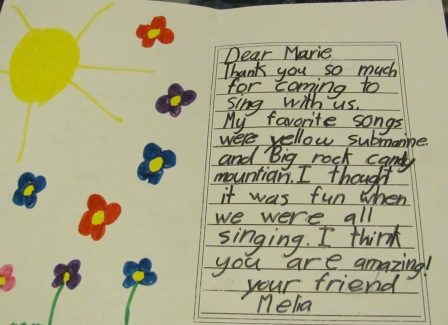 Dear Marie
Thank you so much
for coming to
sing with us.
My favorite songs
were yellow submarine.
and Big rock candy
mountian. I thought
it was fun when
we were all
singing. I think
you are amazing!
your friend
Melia